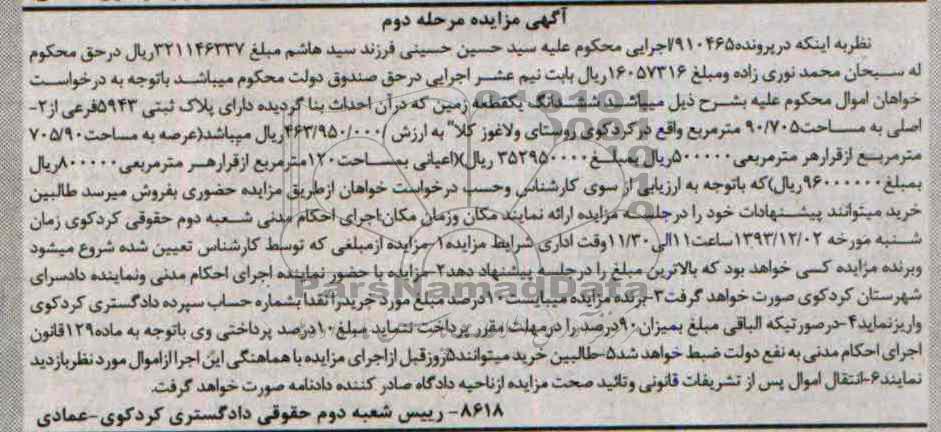 آگهی مزایده مرحله دوم
نظربه اینکه درپرونده۹۱۰۴۶۵/اجرایی محکوم علیه سید حسین حسینی فرزند سید هاشم مبلغ ۳۲۱۱۴۶۳۳۷ریال درحق محکوم
له سبحان محمد نوری زاده ومبلغ ۱۶۰۵۷۳۱۶ریال بابت نیم عشر اجرایی درحق صندوق دولت محکوم میباشد باتوجه به درخواست
خواهان اموال محکوم علیه بشرح ذیل میباشد ششدانگ یکقطعه زمین که درآن احداث بنا گردیده دارای پلاک ثبتی ۵۹۴۳فرعی از۲-
اصلی به مساحت۹۰/۷۰۵ مترمربع واقع درکردکوی روستای ولاغوز کلا" به ارزش ۴۶۳/۹۵۰/۰۰۰ریال میباشد(عرصه به مساحت۷۰۵/۹۰
مترمربع ازقرارهر مترمربعی۵۰۰۰۰۰ریال بمبلغ۳۵۲۹۵۰۰۰۰ ریال)(اعیانی بمساحت۱۲۰مترمربع ازقرارهر مترمربعی۸۰۰۰۰۰ریال
بمبلغ۹۶۰۰۰۰۰۰ریال)که باتوجه به ارزیابی از سوی کارشناس وحسب درخواست خواهان ازطریق مزایده حضوری بفروش میرسد طالبین
خرید میتوانند پیشنهادات خود را درجلسه مزایده ارائه نمایند مکان وزمان مکان:اجرای احکام مدنی شعبه دوم حقوقی کردکوی زمان
شنبه مورخه ۱۳۹۳/۱۲/۰۲ساعت۱۱الی۱۱/۳۰وقت اداری شرایط مزایده۱-مزایده ازمبلغی که توسط کارشناس تعیین شده شروع میشود
وبرنده مزایده کسی خواهد بود که بالاترین مبلغ را درجلسه پیشنهاد دهد۲-مزایده با حضور نماینده اجرای احکام مدنی ونماینده دادسرای
شهرستان کردکوی صورت خواهد گرفت۳-برنده مزایده میبایست۱۰درصد مبلغ مورد خریدرا نقدا بشماره حساب سپرده دادگستری کردکوی
واریزنماید۴-درصورتیکه الباقی مبلغ بمیزان۹۰درصد را درمهلت مقرر پرداخت ننماید مبلغ۱۰درصد پرداختی وی باتوجه به ماده۱۲۹قانون
اجرای احکام مدنی به نفع دولت ضبط خواهد شد۵-طالبین خرید میتوانند۵روزقبل ازاجرای مزایده با هماهنگی این اجرا ازاموال مورد نظربازدید
نمایند۶-انتقال اموال پس از تشریفات قانونی وتائید صحت مزایده ازناحیه دادگاه صادر کننده دادنامه صورت خواهد گرفت.
۸۶۱۸- رییس شعبه دوم حقوقی دادگستری کردکوی-عمادی
ParsNamadData